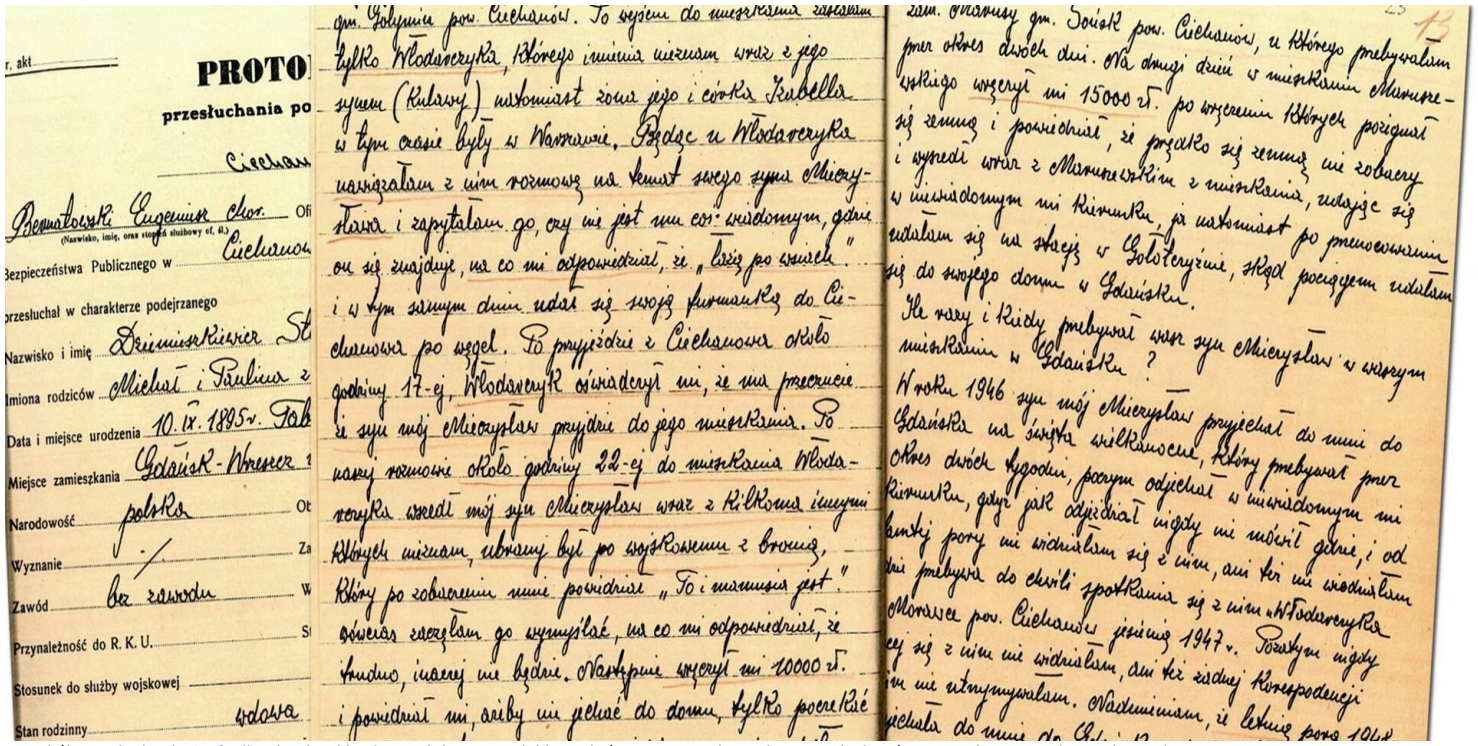 r. akt
PROTO
przesłuchania po
Ciechan
Eugeniusz chor. Ofi
(Nazwisko, imię, oraz stopień służbowy of. śl.)
Bezpieczeństwa Publicznego w Ciechanow
przesłuchał w charakterze podejrzanego
Nazwisko i imię Dziemieszkiewicz St
Imiona rodziców Michał i Paulina z
Data i miejsce urodzenia 10.IX.1895r.
Miejsce zamieszkania Gdańsk-Wrzeszcz
Narodowość polska Ob
Wyznanie ./. Za
Zawód bez zawodu W
Przynależność do R. K. U. St
Stosunek do służby wojskowej
Stan rodzinny wdowa
gm. Gołymin pow. Ciechanów. Po wejściu do mieszkania zastałam
tylko Włodarczyka, którego imienia nieznam wraz z jego
synem (Kulawy) natomiast żona jego i córka Izabella
w tym czasie były w Warszawie. Będąc u Włodarczyka
nawiązałam z nim rozmowę na temat swego syna Mieczy-
sława i zapytałam go, czy nie jest mu coś wiadomym, gdzie
on się znajduje, na co mi odpowiedział, że „łażą po wsiach"
i w tym samym dniu udał się swoją furmanką do Cie-
chanowa po węgel. Po przyjeździe z Ciechanowa około
godziny 17-ej, Włodarczyk oświadczył mi, że ma przeczucie
że syn mój Mieczysław przyjdzie do jego mieszkania. Po
naszy rozmowie około godziny 22-ej do mieszkania Włoda-
rczyka wszedł mój syn Mieczysław wraz z kilkoma innymi
których nieznam, ubrany był po wojskowemu z bronią,
który po zobaczeniu mnie powiedział „To i mamusia jest".
wówczas zaczęłam go wymyślać, na co mi odpowiedział, że
trudno, inaczej nie będzie. Następnie wręczył mi 10000 zł.
i powiedział mi, ażeby nie jechać do domu, tylko poczekać
23 15
zam. Marusy gm. Sońsk pow. Ciechanów, u którego przebywałam
przez okres dwóch dni. Na drugi dzień w mieszkaniu Marusze-
wskiego wręczył mi 15000 zł. po wręczeniu których pożegnał
się zemną i powiedział, że prędko się zemną nie zobaczy
i wyszedł wraz z Maruszewskim z mieszkania, udając się
w niewiadomym mi kierunku, ja natomiast po przenocowaniu
udałam się na stację w Gołotczyźnie, skąd pociągiem udałam
się do swojego domu w Gdańsku.
Ile razy i kiedy przebywał wasz syn Mieczysław w waszym
mieszkaniu w Gdańsku ?
W roku 1946 syn mój Mieczysław przyjechał do mnie do
Gdańska na święta wielkanocne, który przebywał przez
okres dwóch tygodni, poczym odjechał w niewiadomym mi
kierunku, gdyż jak odjeżdżał nigdy nie mówił gdzie, i od
tamtej pory nie widziałam się z nim, ani też nie wiedziałam
gdzie przebywa do chwili spotkania się z nim u Włodarczyka
Morawce pow. Ciechanów jesienią 1947 r. Pozatym nigdy
cej się z nim nie widziałam, ani też żadnej korespodencji
nim nie utrzymywałam. Nadmieniam, że letnią porą 1948
jechała do mnie do